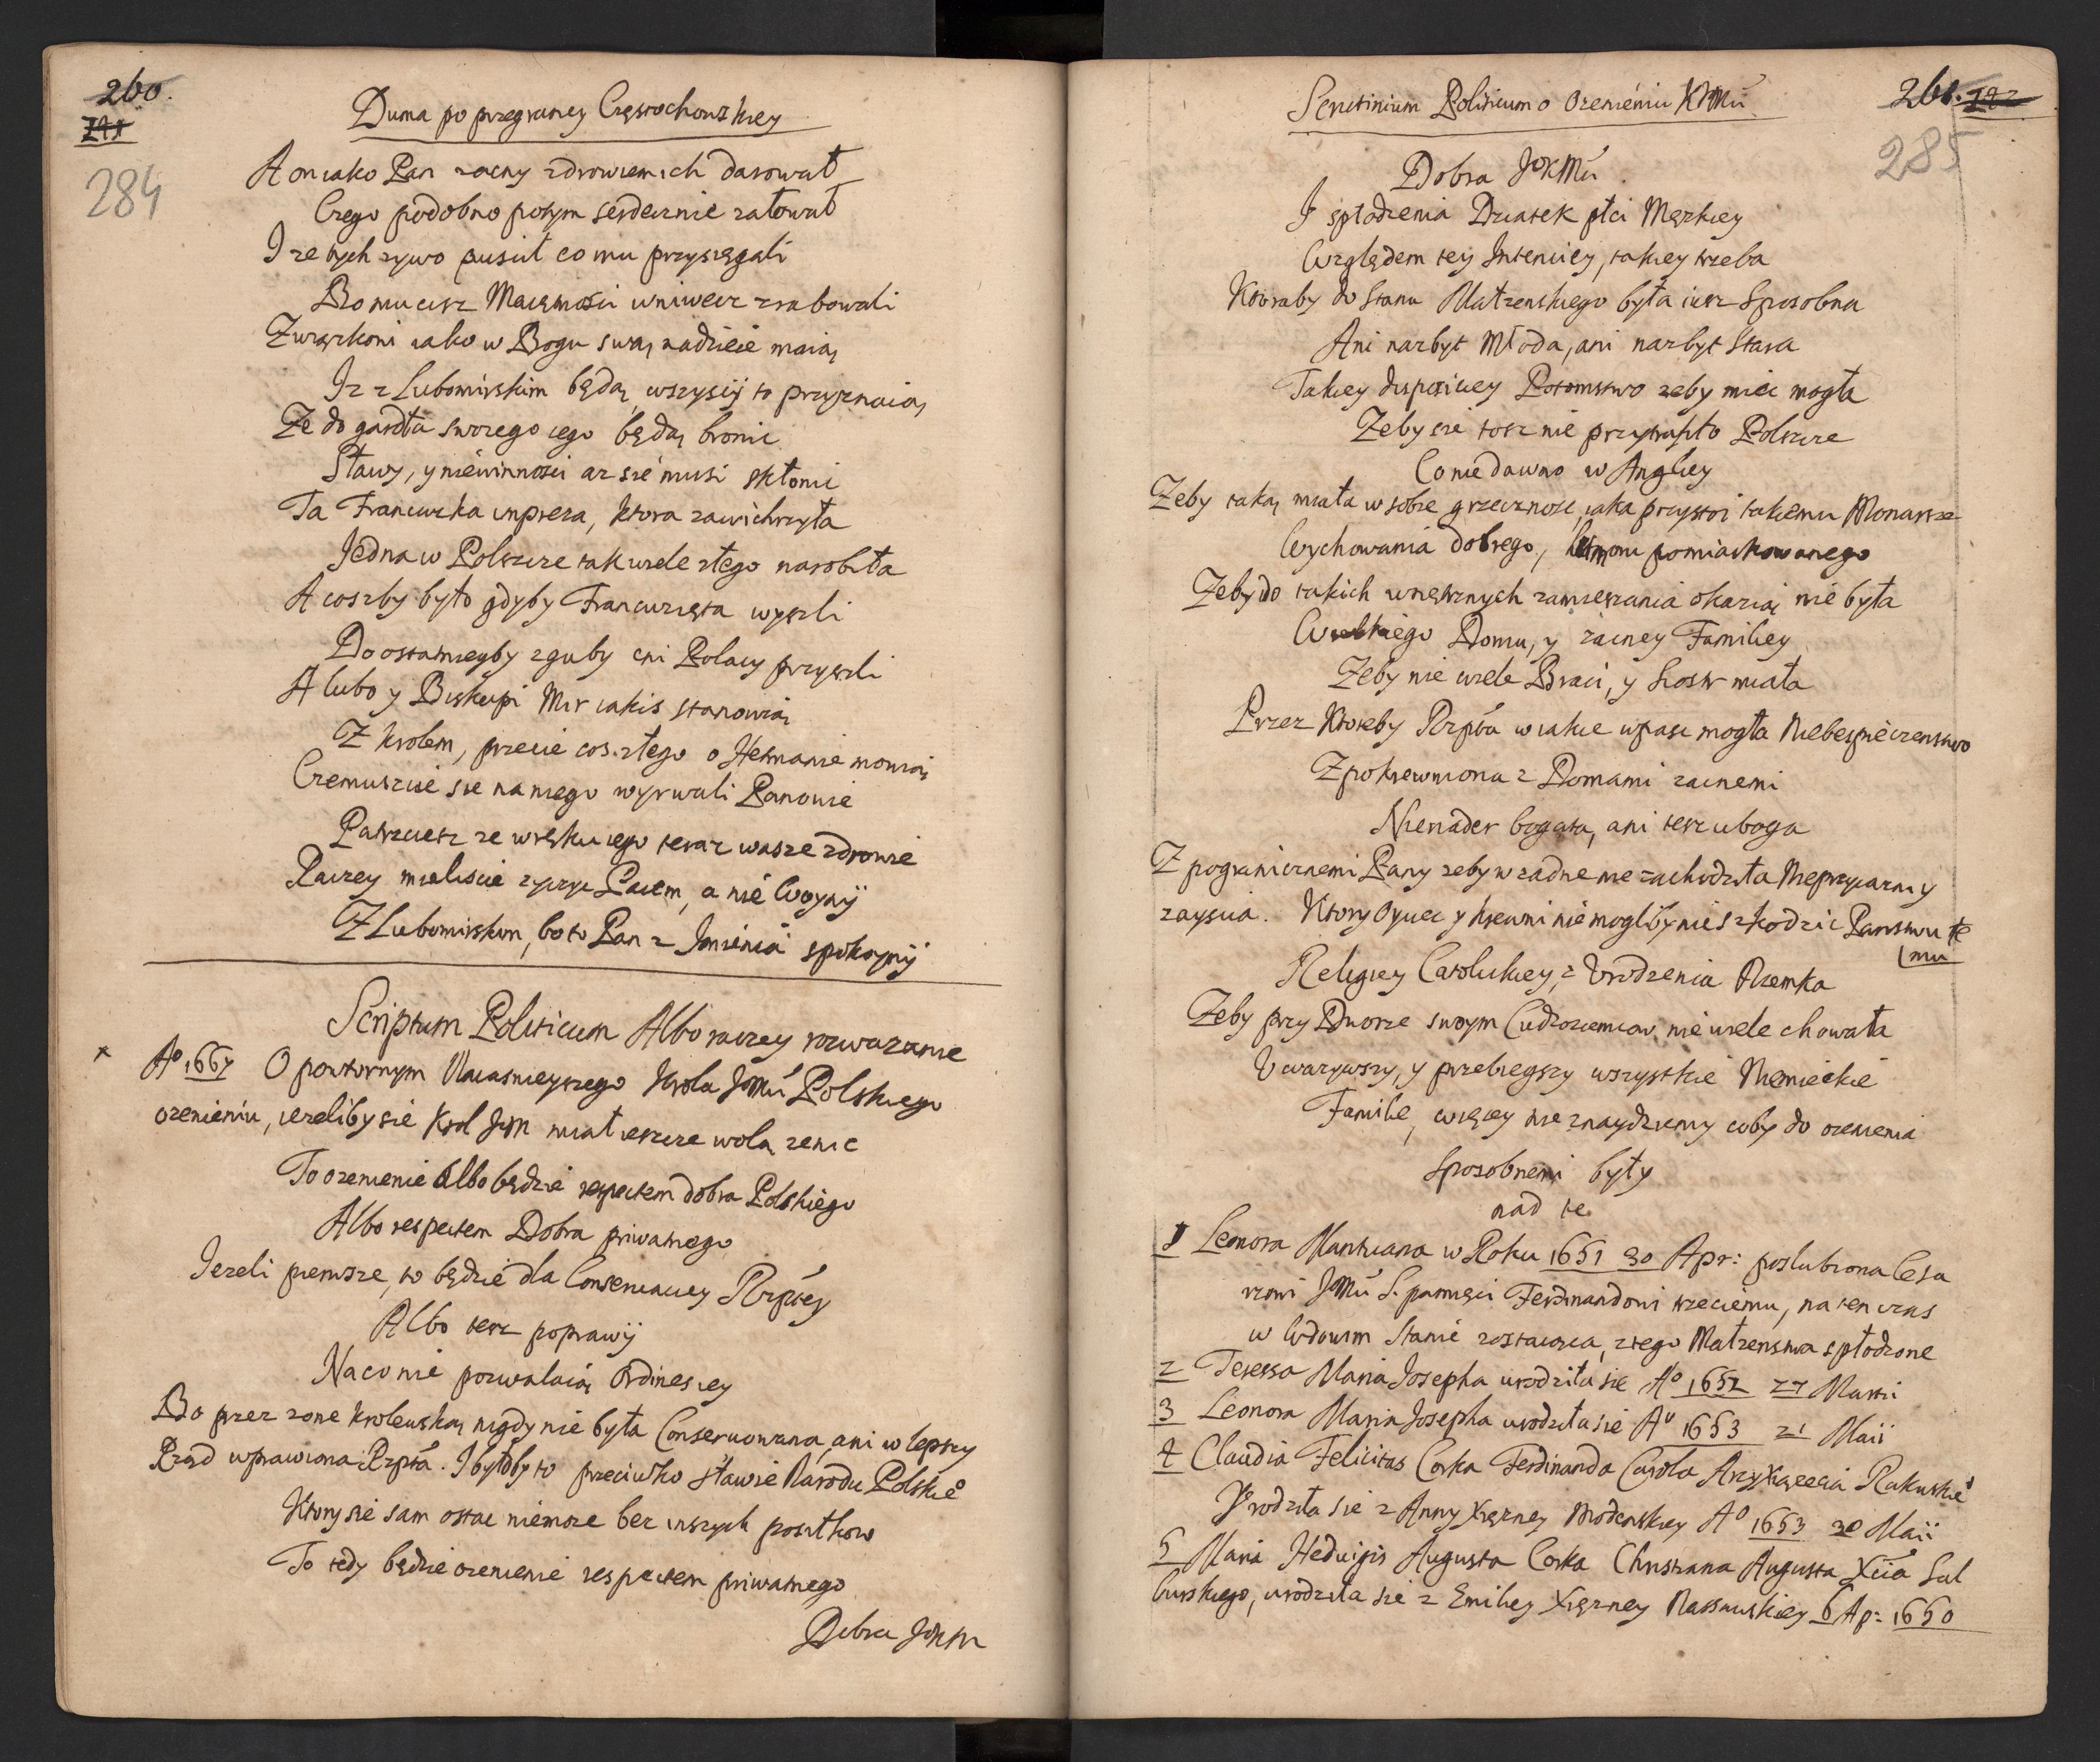 260.
284
Duma po przegraney Częstochowskiey
A on iako Pan zacny zdrowiem ich darował
Czego podobno potym serdecznie załował
I ze tych zywo puscił co mu przysięgali
Bo mu cisz Maiętnosci wniwecz zrabowali
Związkowi iako w Bogu swą nadzieie maią
Iz z Lubomirskim będą wszyscÿ to przyznaią
Ze do gardła swoiego iego będą bronic
Sławy, y niewinnosci az sie musi skłonic
Ta Francuska impreza, ktora zawichrzyła
Jedna w Polszcze tak wiele złego narobiła
A coszby było gdyby Francuzięta wyszli
Do ostatnieyby zguby cni Polacy przyszli
A lubo y Biskupi Mir iakis stanowią
Z krolem, przecie cos złego o Hetmanie mowią
Czemuszcie sie na niego wyrwali Panowie
Patrzciesz ze w ręku iego teraz wasze zdrowie
Raczey mieliscie zyczyc Pacem, a nie Woynÿ
Z Lubomirskim, bo to Pan z Imienia spokoynÿ
Scriptum Politicum Albo raczey rozwazanie
x Aº 1667 O powtornym Naiasnieyszego Krola JMú Polskiego
ozenieniu, iezeliby sie Krol JM miał ieszcze wolą zenic
To ozenienie Albo będzie respectem dobra Polskiego
Albo respectem Dobra priwatnego
Jezeli pierwsze, to będzie dla Conservaciey Rzptey
Albo tesz poprawÿ
Na co nie pozwalaią Ordinesiey
Bo przez zone krolewską nigdy nie była Conserwowana, ani w lepszy
Rząd wprawiona Rzpta. I byłoby to przeciwko sławie Narodu Polskieº
Ktory sie sam ostac niemoze bez inszych posiłkow
To tedy będzie ozenienie respectem priwatnego
Dobra JoKM
Scrutinium Politicum o Ozenieniu KJMú
261.
285
Dobra JoKMú
I spłodzenia Dziatek płci Męzkiey
Względem tey Intenciey, takiey trzeba
Ktoraby do Stanu Małzenskiego była iusz Sposobna
Ani nazbyt Młoda, ani nazbyt Stara
Takiey dispoziciey Potomstwo zeby miec mogła
Zeby sie tosz nie przytrafiło Polszcze
Co nie dawno w Angliey
Zeby taką miała w sobie grzecznosc, iaka przystoi takiemu Monarsze
Wychowania dobrego, pomiarkowanego
Zeby do takich wnętrznych zamieszania okazią nie była
Wielkiego Domu, y zacney Familiey
Zeby nie wiele Braci, y Siostr miała
Przez Ktoreby Rzpta w iakie wpasc mogła Niebespieczenstwo
Zpokrewniona z Domami zacnemi
Nienader bogata, ani tesz uboga
Z pogranicznemi Pany zeby w zadne nie zachodziła Nieprzyiazni y
zayscia. Ktory Oyciec y krewni nie mogliby nie szkodzic Panstwu te
mu
Religiey Catolickiey, z Urodzenia Niemka
Zeby przy Dworze swoym Cudzoziemcow nie wiele chowała
Uwazywszy, y przebiegszy wszystkie Niemieckie
Familie, więcey nie znaydziemy coby do ozenienia
Sposobnemi były
nad te
1 Leonora Mantuana w Roku 1651 30 Apr: poslubiona Cesa
rzowi JMú S. pamięci Ferdinandowi trzeciemu, na ten czas
w Wdowim Stanie zostaiąca, z tego Małzenstwa spłodzone
2 Teressa Maria Josepha urodziła sie Aº 1652 27 Martii
3 Leonora Maria Josepha urodziła sie Aº 1653 21 Maii
4 Claudia Felicitas Corka Ferdinanda Carola Arzyxięcia Rakuskieº
Urodziła sie z Anny Xięzney Modenskiey Aº 1653 30 Maii
5 Maria Hedwigis Augusta Corka Christiana Augusta Xcia Sul
burskiego, urodziła sie z Emiliey Xięzney Nassauskiey 6 Ap: 1650